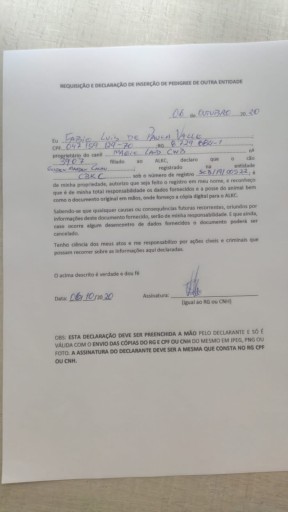 REQUISIÇÃO E DECLARAÇÃO DE INSERÇÃO DE PEDIGREE DE OUTRA ENTIDADE
06 de OUTUBRO de 20
Eu FABIO LUIS DE PAULA VALLE
CPF RG
proprietário do canil MAGIC LAND CNB, nº
3903, filiado ao ALEC, declaro que o cão
registrado na entidade
CBKC sob o número de registro
de minha propriedade, solicito que seja feito o registro em meu nome, e reconheço
que é de minha total responsabilidade os dados fornecidos e a prova do animal bem
como o documento original em mãos, onde forneço a cópia digital para o ALEC.
Sabendo-se que quaisquer causas ou consequências futuras recorrentes, oriundos por
informações deste documento fornecido, serão de minha responsabilidade. E que ainda,
caso ocorra algum desencontro de dados fornecidos o documento poderá ser
cancelado.
Tenho ciência dos meus atos e me responsabilizo por ações cíveis e criminais que
possam recorrer sobre as informações aqui declaradas.
O acima descrito é verdade e dou fé
Data: 06/10/2020 Assinatura:
(Igual ao RG ou CNH)
OBS: ESTA DECLARAÇÃO DEVE SER PREENCHIDA A MÃO PELO DECLARANTE E SÓ É
VÁLIDA COM O ENVIO DAS CÓPIAS DO RG E CPF OU CNH DO MESMO EM JPEG, PNG OU
FOTO. A ASSINATURA DO DECLARANTE DEVE SER A MESMA QUE CONSTA NO RG CPF
OU CNH.